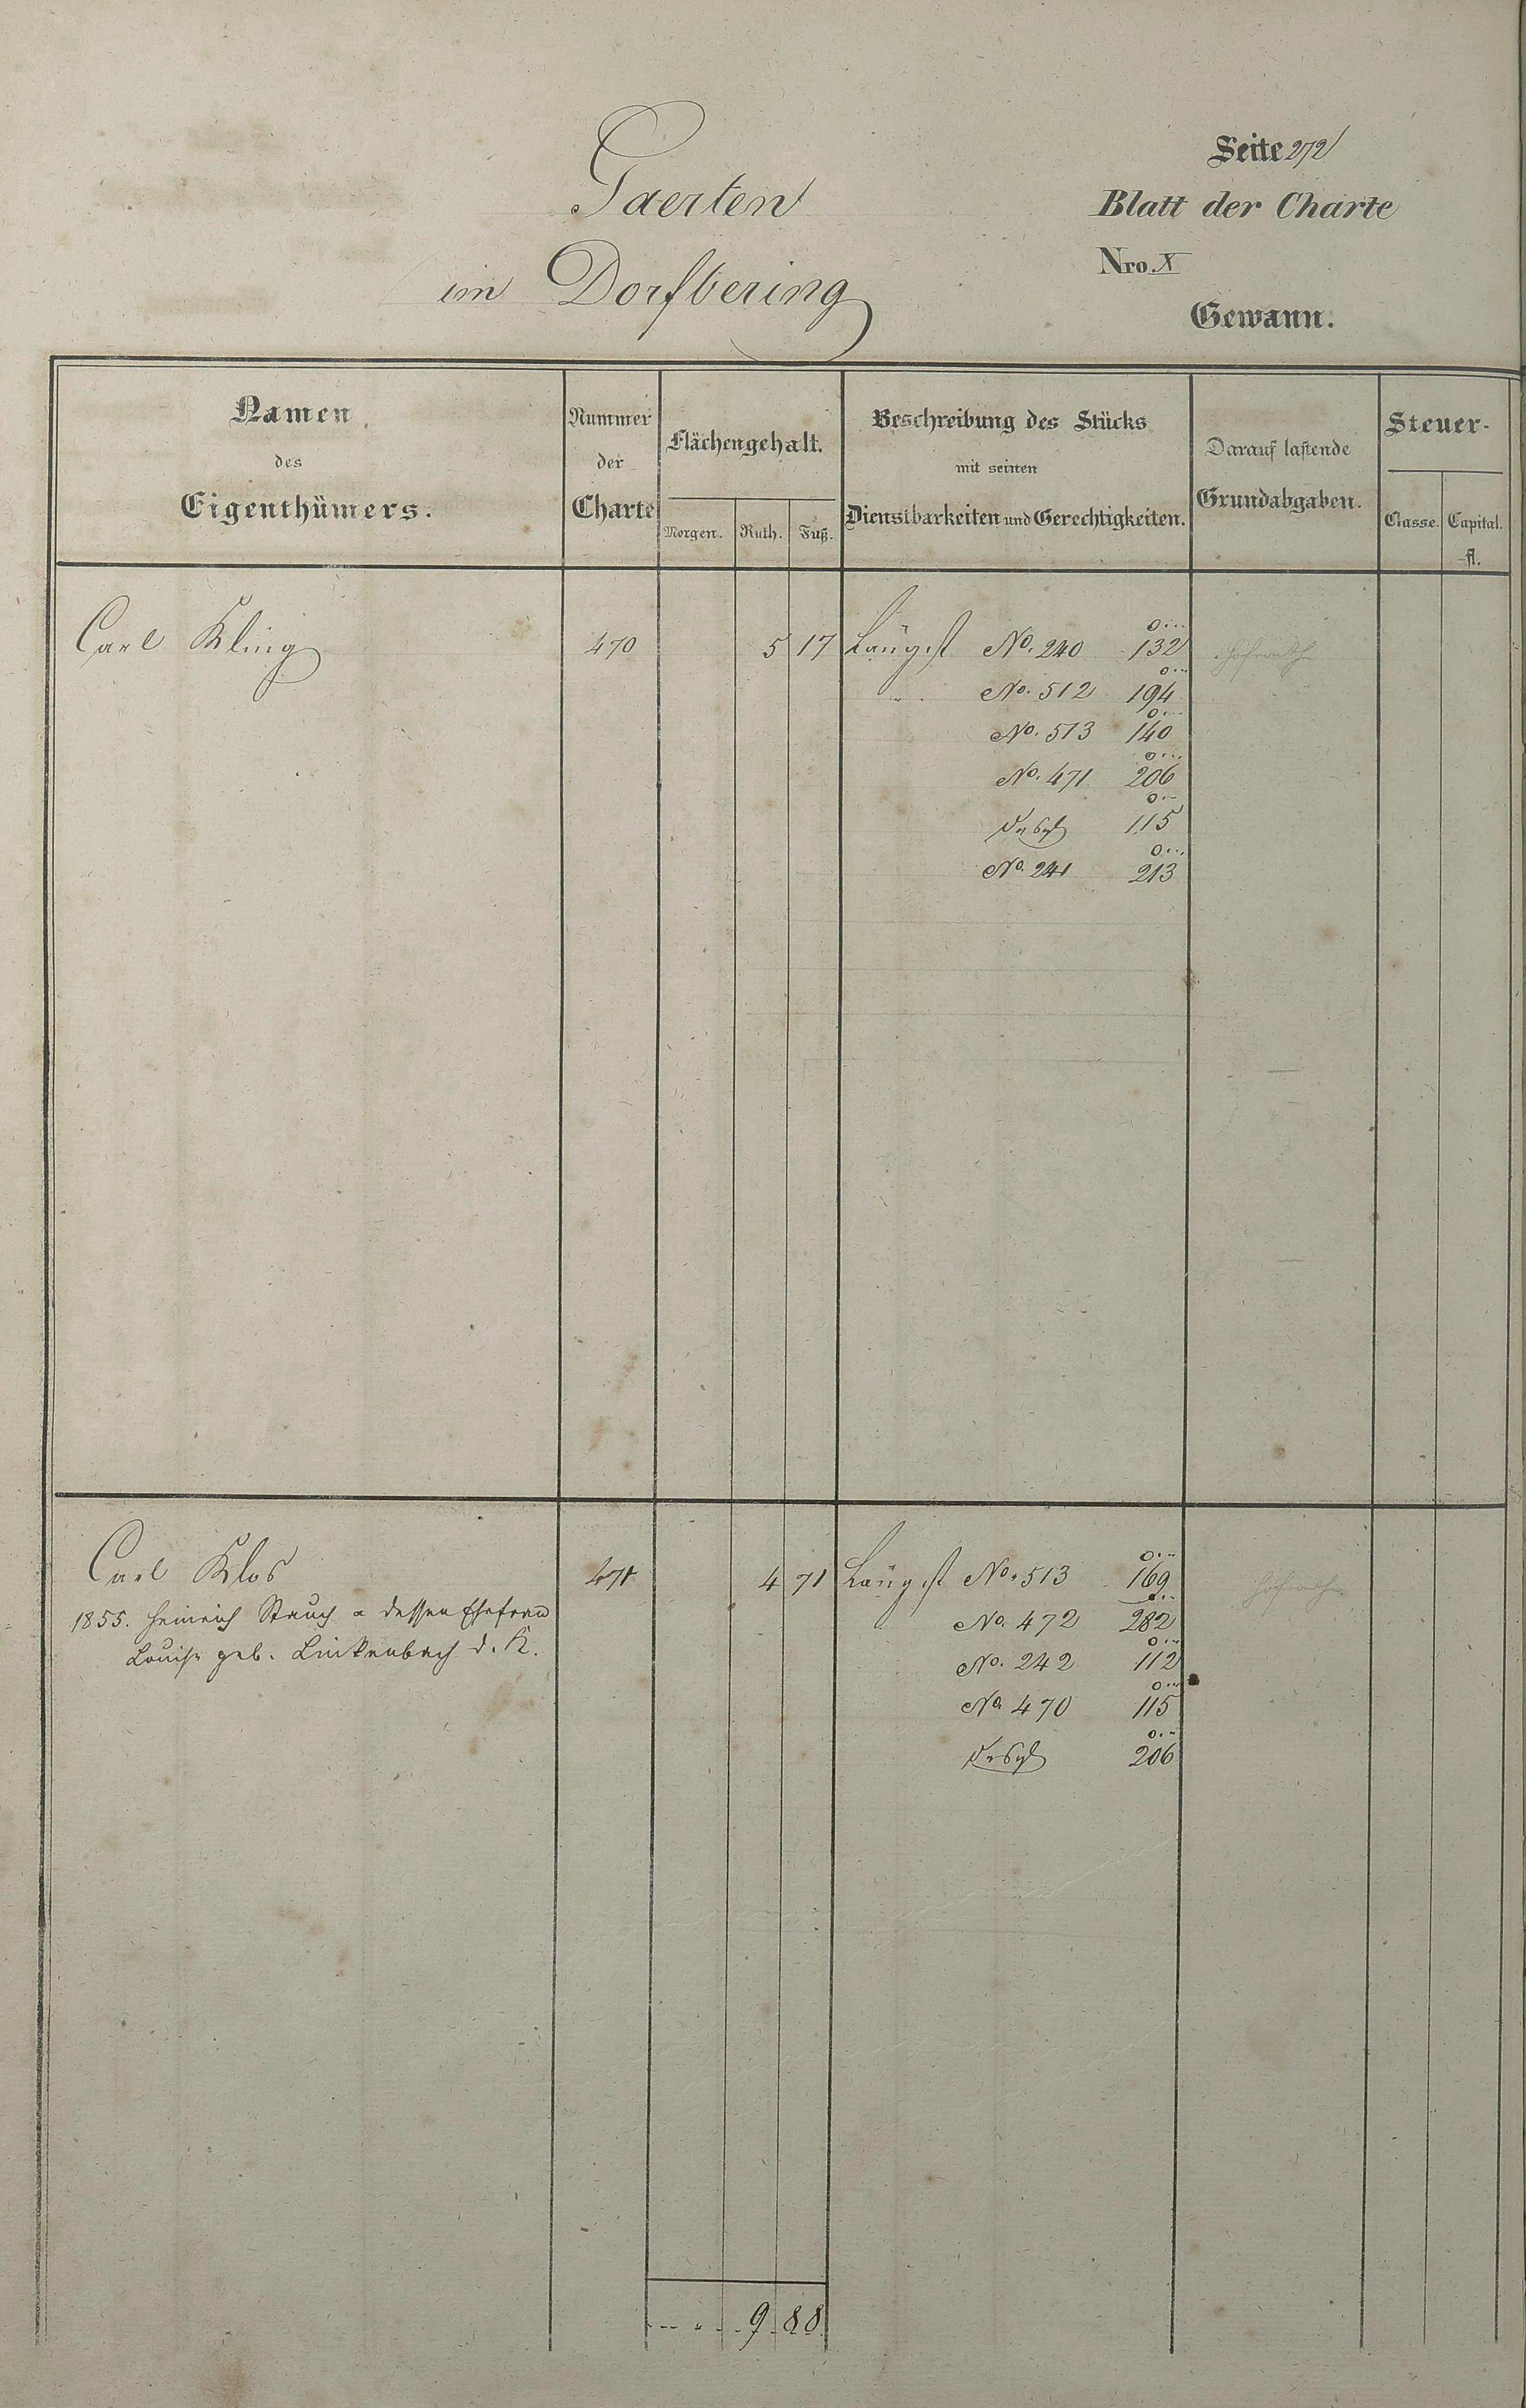 Seite 272
Gaerten
Blatt der Charte
im Dorfbering
Nro. X
Gewann.
Namen
des
Eigenthümers.
Nummer
der
Charte
Flächengehalt.
Morgen. Ruth. Fuß.
Beschreibung des Stücks
mit seinen
Dienstbarkeiten und Gerechtigkeiten.
Darauf lastende
Grundabgaben.
Steuer-
Classe. Capital.
fl.
Carl Kling 470 5 17 Längst No. 240 132
No. 512 194
No. 513 140
No. 471 206
115
No. 241 213
Carl Klos 471 4 71 Längst No. 513 169
1855. Heinrich Stauch & dessen Ehefrau
No. 472 282
Louise geb. Linkenbach d. K.
No. 242 112
No 470 115
206
9 88